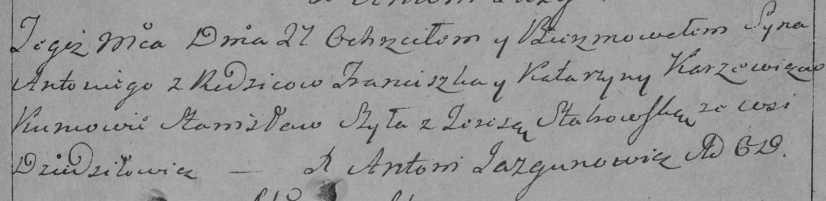 Tegiż Mca Dnia 27 Ochrzciłem y Bierzmowałem Syna
Antoniego z Rodzicow Franciszka y Katarzyny Karzewiczow
Kumowie Stanisław Szyła z Teresą Stabrowską ze wsi
Dziedziłowicz — X Antoni Jazgunowicz AD CD.